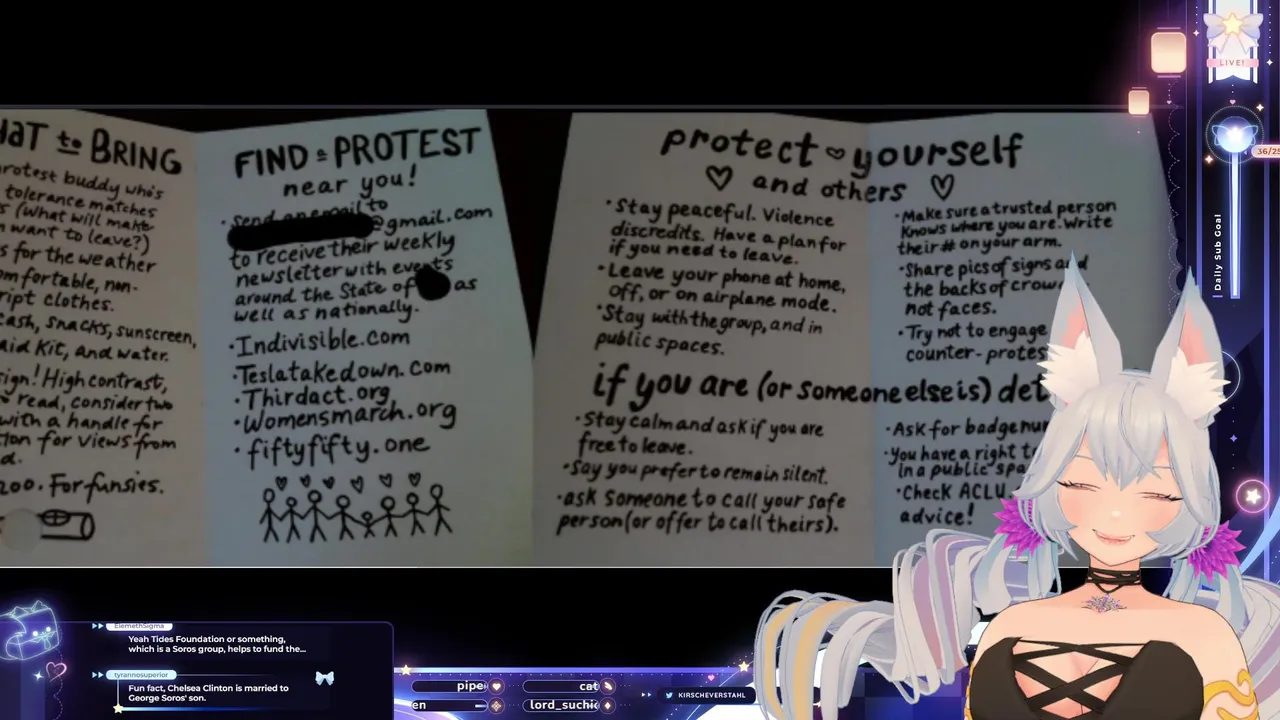 HAT to BRING
protest buddy who's
tolerance matches
(What will make
want to leave?)
for the weather
comfortable, non-
clothes.
cash, snacks, sunscreen,
aid Kit, and water.
sign! High contrast,
read, consider two
with a handle for
for views from
200. For funsies.
FIND a PROTEST
near you!
• Send an email to
@gmail.com
to receive their weekly
newsletter with events
around the State of as
well as nationally.
• Indivisible.com
• Teslatakedown.com
• Thirdact.org
• Womensmarch.org
• fiftyfifty.one
protect yourself
and others
• Stay peaceful. Violence
discredits. Have a plan for
if you need to leave.
• Leave your phone at home,
off, or on airplane mode.
• Stay with the group, and in
public spaces.
• Make sure a trusted person
Knows where you are. Write
their # on your arm.
• Share pics of signs and
the backs of crow
not faces.
• Try not to engage
counter-protes
if you are (or someone else is) det
• Stay calm and ask if you are
free to leave.
• Say you prefer to remain silent.
• ask someone to call your safe
person (or offer to call theirs).
• Ask for badge num
• You have a right t
in a public spa
• Check ACLU
advice!
LIVE!
36/25
Daily Sub Goal
ElemethSigma
Yeah Tides Foundation or something,
which is a Soros group, helps to fund the...
tyrannosuperior
Fun fact, Chelsea Clinton is married to
George Soros' son.
pipe
cat
en
lord_suchi
KIRSCHEVERSTAHL